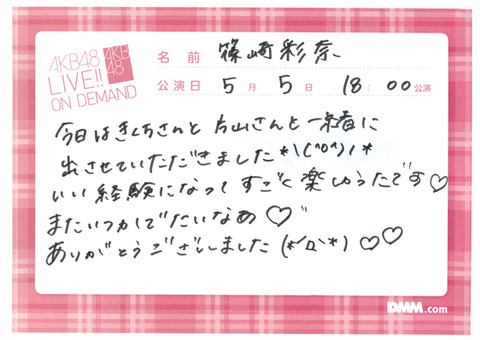 AKB48
LIVE!!
ON DEMAND
AKB
48
名前 篠崎彩奈
公演日 5月5日 18:00公演
今日はきくちさんと片山さんと一緒に
出させていただきました*\(^o^)/*
いい経験になってすごく楽しかったです♡
またいつかでたいなぁ♡
ありがとうございました(*´Д`*)♡♡
DMM.com